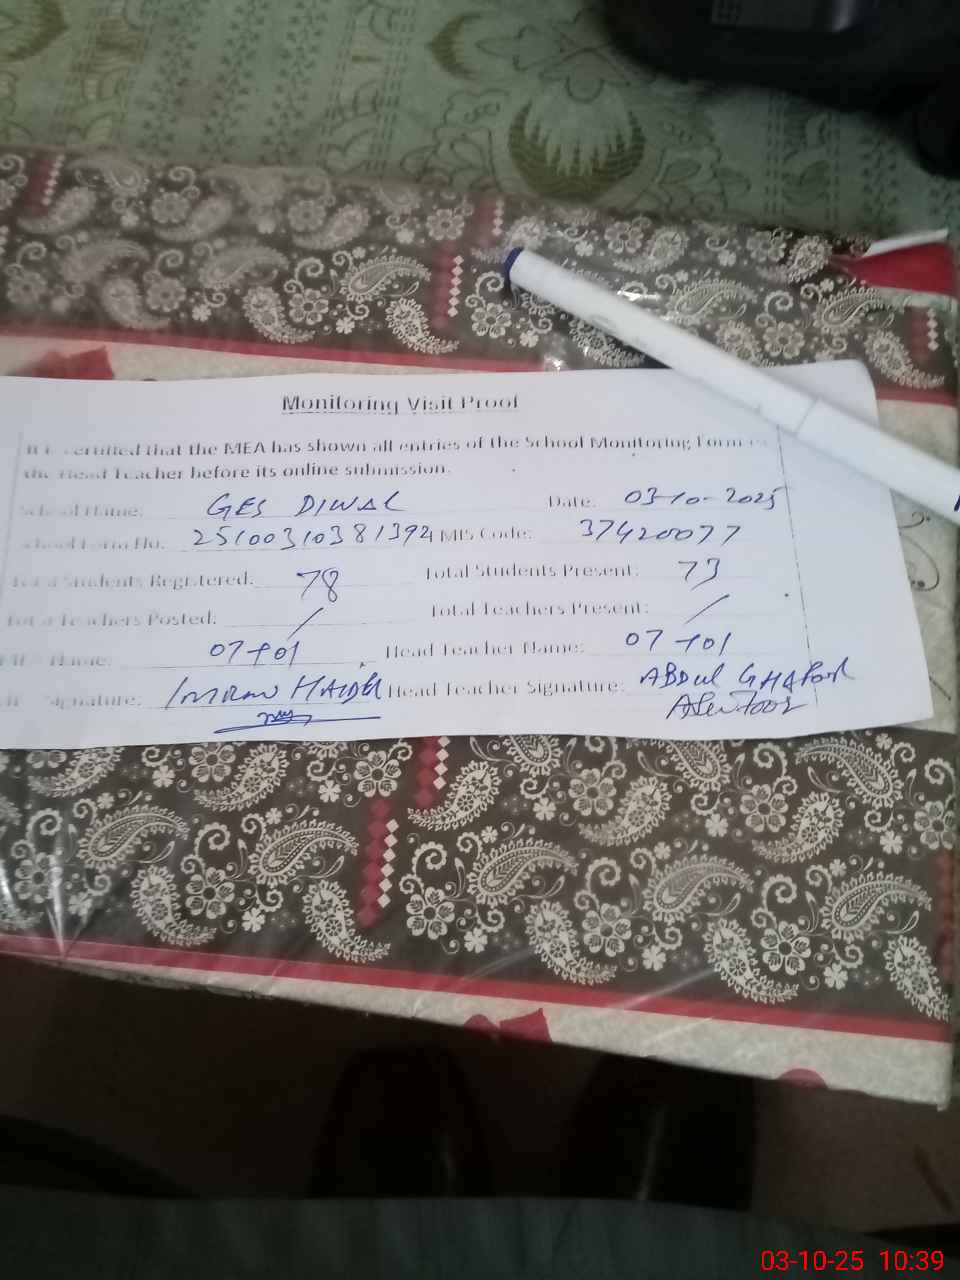 Monitoring Visit Proof
It is certified that the MEA has shown all entries of the School Monitoring Form to
the Head Teacher before its online submission.
School Name: GES DIWAL Date: 03-10-2025
School Form No: 251003103813924 MIS Code: 37420077
Total Students Registered: 78 Total Students Present: 73
Total Teachers Posted: / Total Teachers Present: /
MEA Name: 07+01 Head Teacher Name: 07+01
Signature: IMRAN HAIDER Head Teacher Signature: ABDUL GHAFOOR
03-10-25 10:39